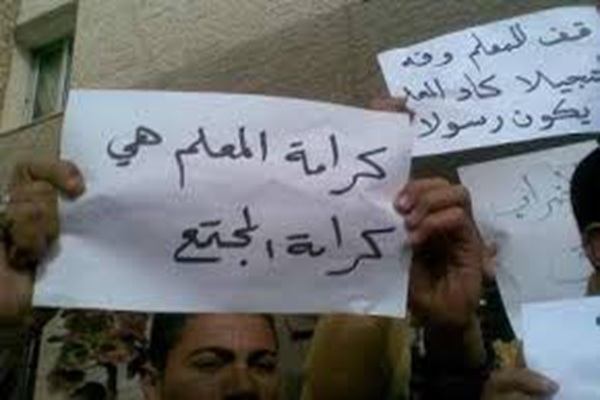 كرامة المعلم هي
كرامة المجتمع
قف للمعلم وفه
التبجيلا كاد المعلم
يكون رسولا